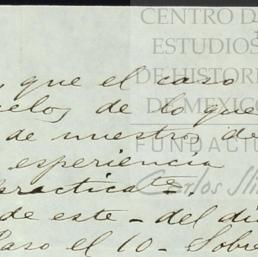 CENTRO DE
ESTUDIOS
DE HISTORI
DE MEXICO
FUNDACIÓ
Carlos Sli
que el caso
de lo que
de nuestros de
experiencia
practicate.
de este - del dí
Paso el 10 - Sobre